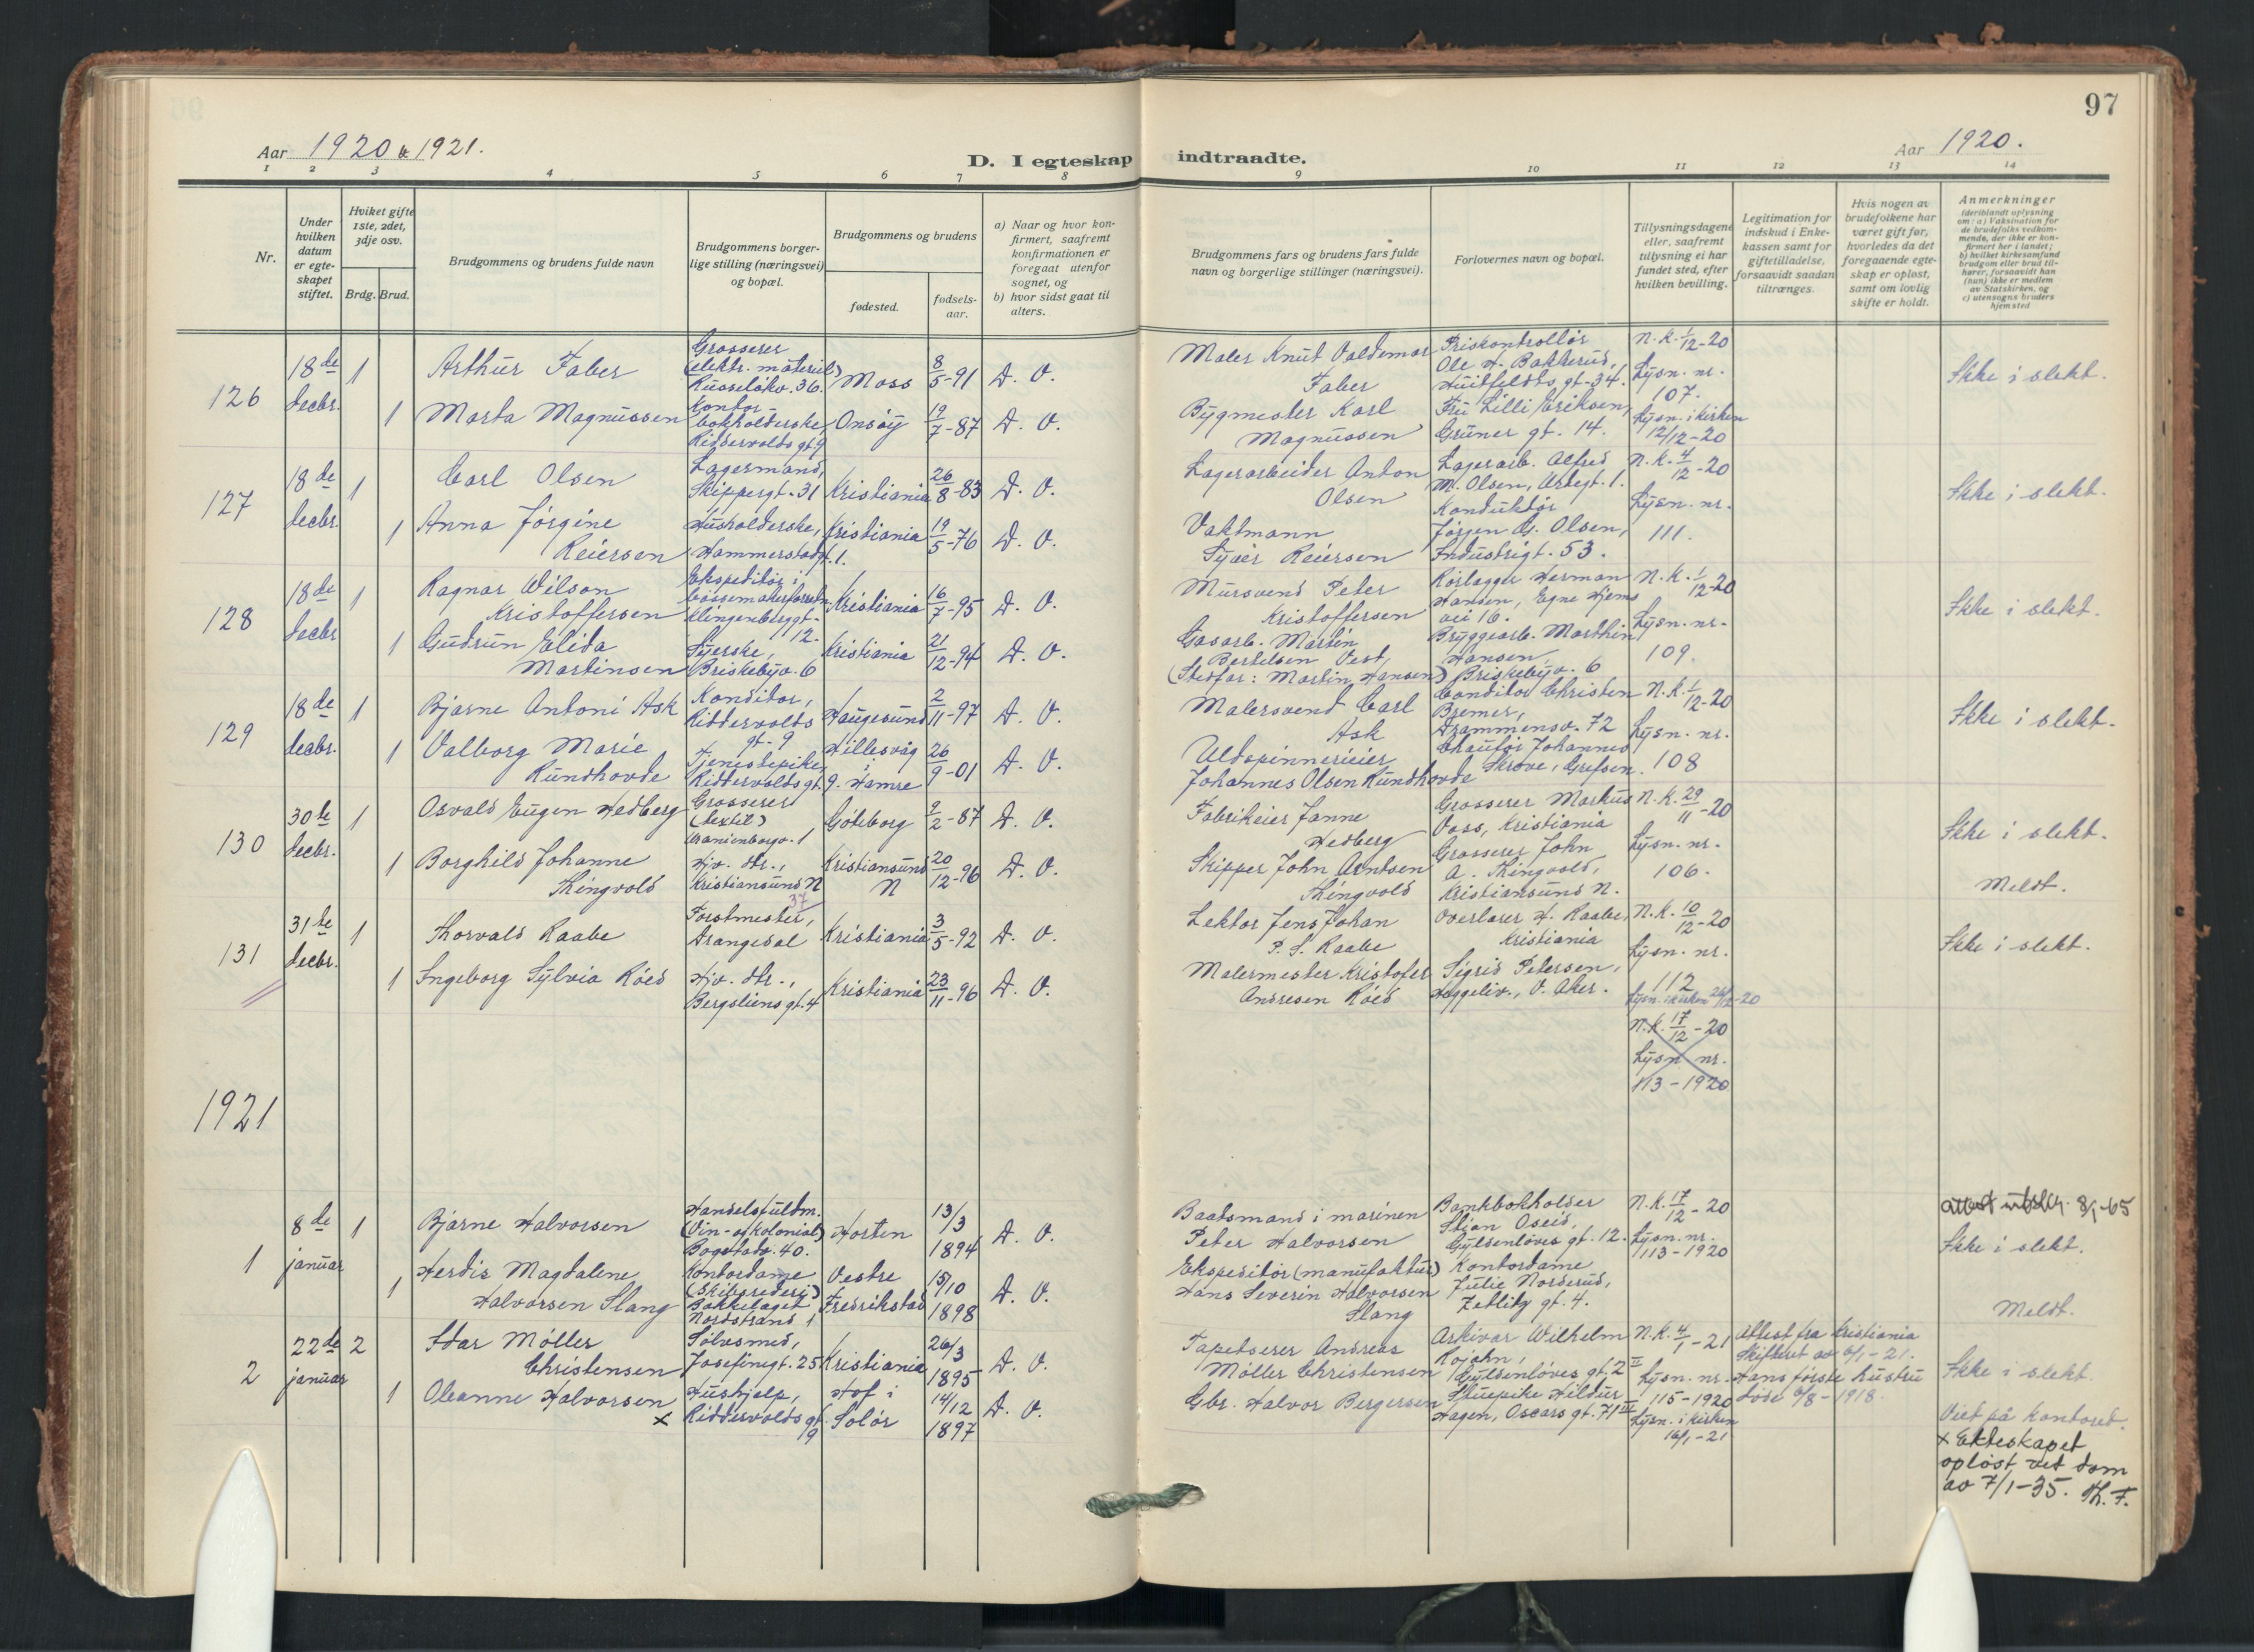 97
Aar 1920 & 1921.
D. I egteskap indtraadte.
Aar 1920.
1 2 3 4 5 6 7 8 9 10 11 12 13 14
Nr.
Under
hvilken
datum
er egte-
skapet
stiftet.
Hviket gifte
1ste, 2det,
3dje osv.
Brdg. Brud.
Brudgommens og brudens fulde navn
Brudgommens borger-
lige stilling (næringsvei)
og bopæl.
Brudgommens og brudens
fødested.
fødsels-
aar.
a) Naar og hvor kon-
firmert, saafremt
konfirmationen er
foregaat utenfor
sognet, og
b) hvor sidst gaat til
alters.
Brudgommens fars og brudens fars fulde
navn og borgerlige stillinger (næringsvei).
Forlovernes navn og bopæl.
Tillysningsdagene
eller, saafremt
tillysning ei har
fundet sted, efter
hvilken bevilling.
Legitimation for
indskud i Enke-
kassen samt for
giftetilladelse,
forsaavidt saadan
tiltrænges.
Hvis nogen av
brudefolkene har
været gift før,
hvorledes da det
foregaaende egte-
skap er opløst,
samt om lovlig
skifte er holdt.
Anmerkninger
(deriblandt oplysning
om: a) Vaksination for
de brudefolks vedkom-
mende, der ikke er kon-
firmert her i landet;
b) hvilket kirkesamfund
brudgom eller brud til-
hører, forsaavidt han
(hun) ikke er medlem
av Statskirken, og
c) utensogns bruders
hjemsted
126
18de
decbr.
1
Arthur Faber
Grosserer
(elektr. materiel)
Russeløkv. 36.
Moss
8/5-91
D. O.
Maler Knut Valdemar
Faber
Priskontrollør
Ole H. Bakkerud,
Huitfeldts gt. 34.
N.K. 1/12-20
Lysn. nr.
107.
Ikke i slekt.
1
Marta Magnussen
Kontor-
bokholderske,
Riddervolds gt 9
Onsøy
19/7-87
D. O.
Bygmester Karl
Magnussen
Fru Lilli Eriksen,
Grüner gt. 14.
Lysn. i kirken
12/12-20
127
18de
decbr.
1
Carl Olsen
Lagermand,
Skippergt. 31
Kristiania
26/8-83
D. O.
Lagerarbeider Anton
Olsen
Lagerarb. Alfred
M. Olsen, Urtegt. 1.
N.K. 4/12-20
Lysn. nr.
111.
Ikke i slekt.
1
Anna Jørgine
Reiersen
Husholderske,
Hammerstadgt. 1.
Kristiania
19/5-76
D. O.
Vaktmann
Syver Reiersen
Konduktør
Jørgen G. Olsen,
Industrigt. 53.
128
18de
decbr
1
Ragnar Wilson
Kristoffersen
Ekspeditør i
bøssemakerforretn.
Klingenberggt.
12.
Kristiania
16/7-95
D. O.
Mursvend Peter
Kristoffersen
Rørlægger Herman
Hansen, Egne Hjems
vei 16.
N.K. 1/12-20
Lysn. nr.
109.
Ikke i slekt.
1
Gudrun Elida
Martinsen
Syerske,
Briskebyv. 6
Kristiania
21/12-94
D. O.
Gasarb. Martin
Bertelsen Vest,
(Stedfar: Martin Hansen)
Bryggearb. Marthin
Hansen,
Briskebyv. 6
129
18de
decbr.
1
Bjarne Antoni Ask
Konditor,
Riddervolds
gt. 9
Haugesund
2/11-97
D. O.
Malersvend Carl
Ask
Conditor Christen
Bremer,
Drammensv. 72
N.K. 1/12-20
Lysn. nr.
108
Ikke i slekt.
1
Valborg Marie
Rundhovde
Tjenestepike,
Riddervolds gt. 9.
Hillesvåg
i
Hamre
26/9-01
D. O.
Uldspinnerieier
Johannes Olsen Rundhovde
Chauffør Johannes
Skrøve, Grefsen.
130
30te
decbr.
1
Osvald Eugen Hedberg
Grosserer
(textil)
Uranienborgv. 1
Göteborg
9/2-87
D. O.
Fabrikeier Janne
Hedberg
Grosserer Markus
Voss, Kristiania
N.K. 29/11-20
Lysn. nr.
106.
Ikke i slekt.
1
Borghild Johanne
Thingvold
Hjv. dtr.,
Kristiansund N
37
Kristiansund
N
20/12-96
D. O.
Skipper John Arntsen
Thingvold
Grosserer John
A. Thingvold,
Kristiansund N.
Meldt.
131
31te
decbr.
1
Thorvald Raabe
Forstmester,
Drangedal
Kristiania
3/5-92
D. O.
Lektor Jens Johan
P. S. Raabe
Overlærer H. Raabe,
Kristiania
N.K. 10/12-20
Lysn. nr.
112
Ikke i slekt.
1
Ingeborg Sylvia Röed
Hjv. dtr.,
Bergsliens gt. 4
Kristiania
23/11-96
D. O.
Malermester Kristofer
Andresen Röed
Sigrid Petersen,
Heggeliv., V. Aker.
Lysn. i kirken 26/12-20
N.K. 17/12-20
Lysn. nr.
113-1920
1921
1
8de
januar
1
Bjarne Halvorsen
Handelsfuldm.
(Vin- og kolonial)
Bogstadv. 40.
Horten
13/3
1894
D. O.
Baatsmand i marinen
Peter Halvorsen
Bankbokholder
Stian Oseid,
Gyldenløves gt. 12.
N.K. 17/12-20
Lysn. nr.
113-1920
Attest utst. 8/1-65
Ikke i slekt.
1
Herdis Magdalene
Halvorsen Slang
Kontordame
(Skibsrederi)
Bakkelaget
Nordstrand 1
Vestre
Fredrikstad
15/10
1898
D. O.
Ekspeditør (manufaktur)
Hans Severin Halvorsen
Slang
Kontordame
Julie Norderud,
Zetlitz gt. 4.
Meldt.
2
22de
januar
2
Idar Møller
Christensen
Sølvsmed,
Josefinegt. 25
Kristiania
26/3
1895
D. O.
Tapetserer Andreas
Møller Christensen
Arkivar Wilhelm
Rojahn,
Gyldenløves gt. 2 II
N.K. 4/1-21
Lysn. nr.
115-1920
Attest fra Kristiania
Skifteret av 6/1-21.
Hans første hustru
døde 6/8-1918.
Ikke i slekt.
1
Oleanne Halvorsen
x
Hushjelp,
Riddervolds gt.
9
Hof i
Solør
14/12
1897
D. O.
Gbr. Halvor Bergersen
Stuepike Hildur
Hagen, Oscars gt. 71 III
Lysn. i kirken
16/1-21
Viet på kontoret.
x Ekteskapet
opløst ved dom
av 7/1-35. Th. F.